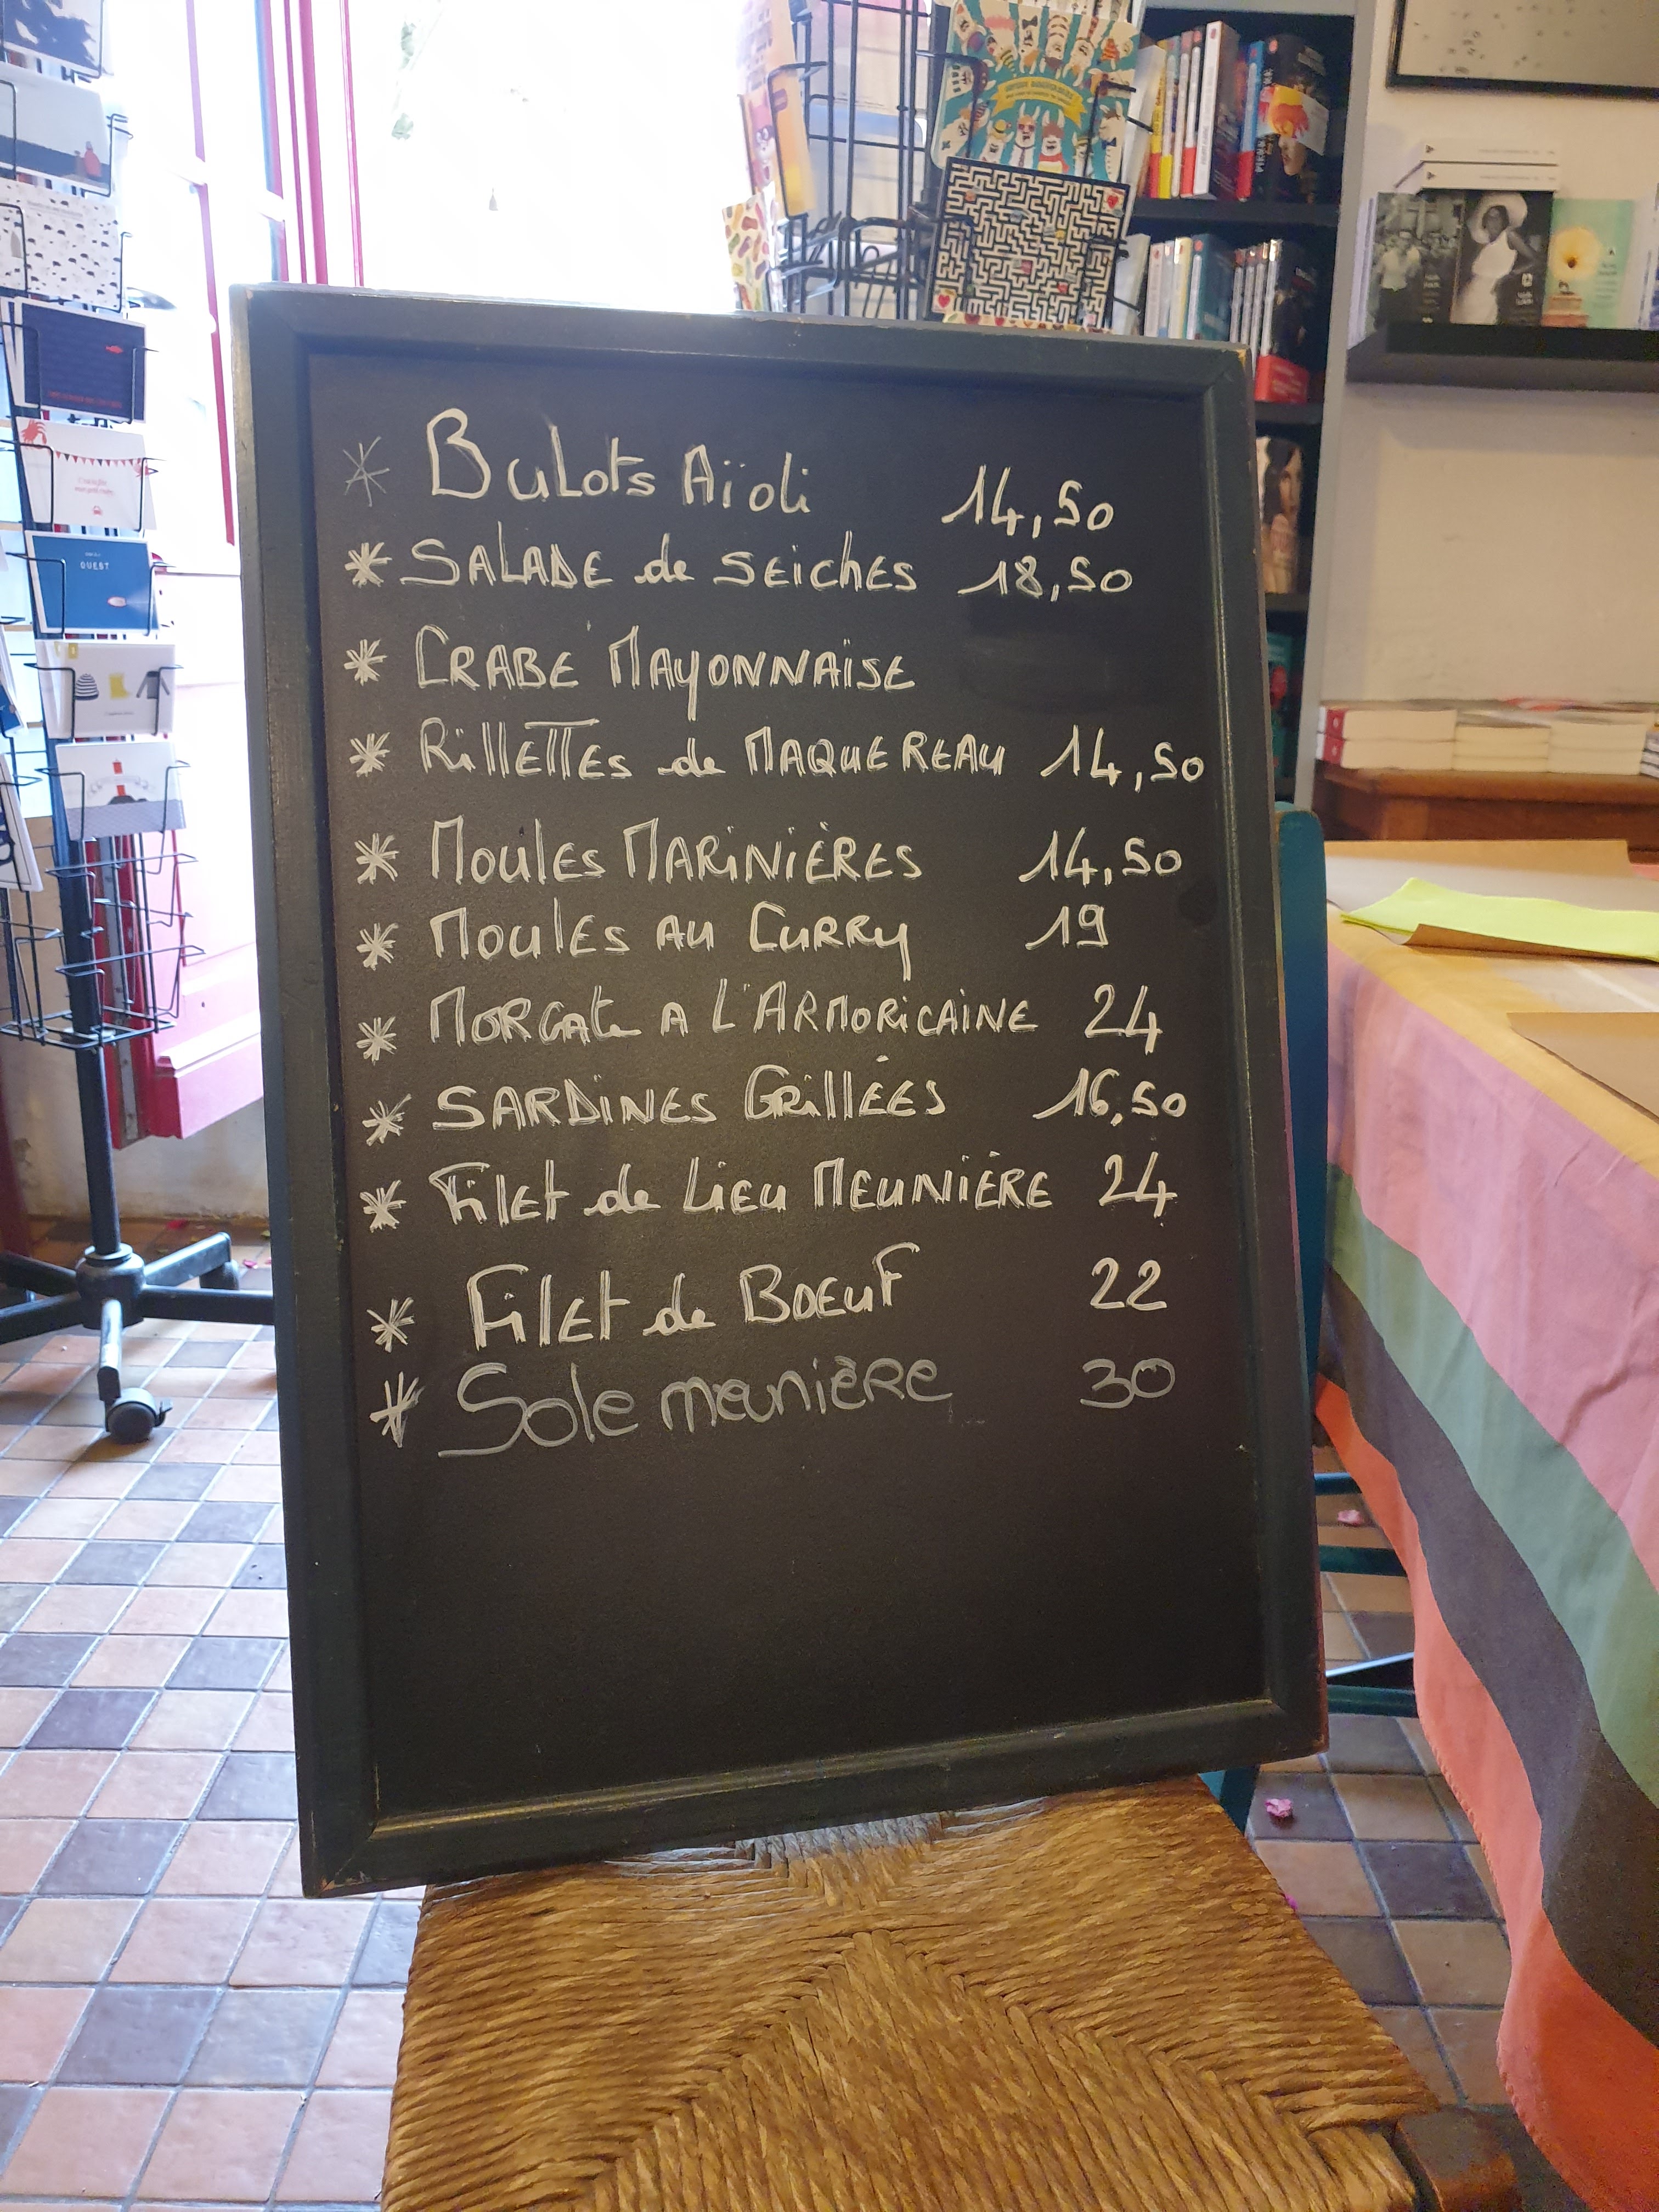 * Bulots Aïoli 14,50
* SALADE de SEiCHES 18,50
* CRABE MAYONNAiSE
* RillETTEs de MAQUEREAU 14,50
* MoulEs MARiNiÈRES 14,50
* MoulEs AU CURRy 19
* MORGAt A L'ARMORiCAiNE 24
* SARDiNES GRillÉES 16,50
* FilEt de LiEu MEUNiÈRE 24
* FilEt de BOEuF 22
* Sole meunièRe 30
OUEST